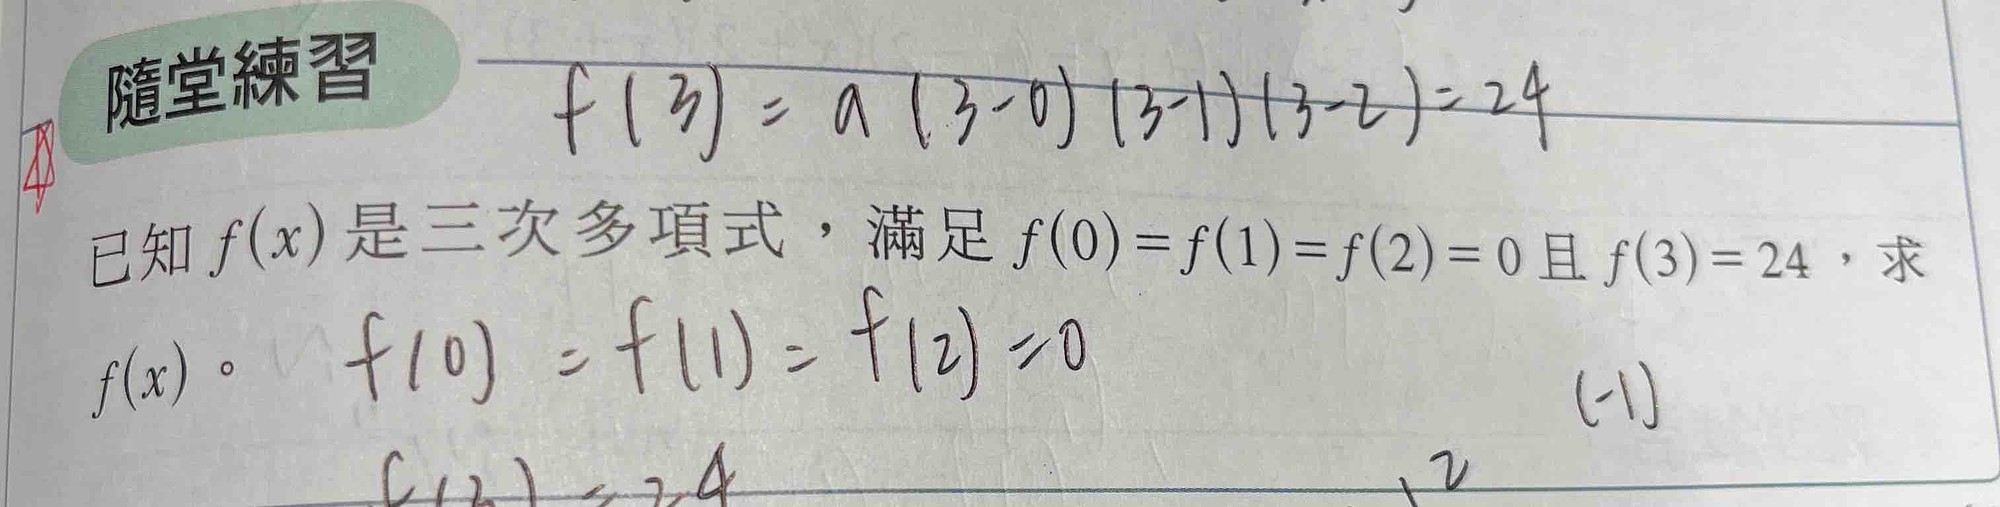 隨堂練習
f(3) = a(3-0)(3-1)(3-2) = 24
已知 f(x) 是三次多項式，滿足 f(0) = f(1) = f(2) = 0 且 f(3) = 24，求
f(x)。 f(0) = f(1) = f(2) = 0
(-1)
f(3) = 24
2